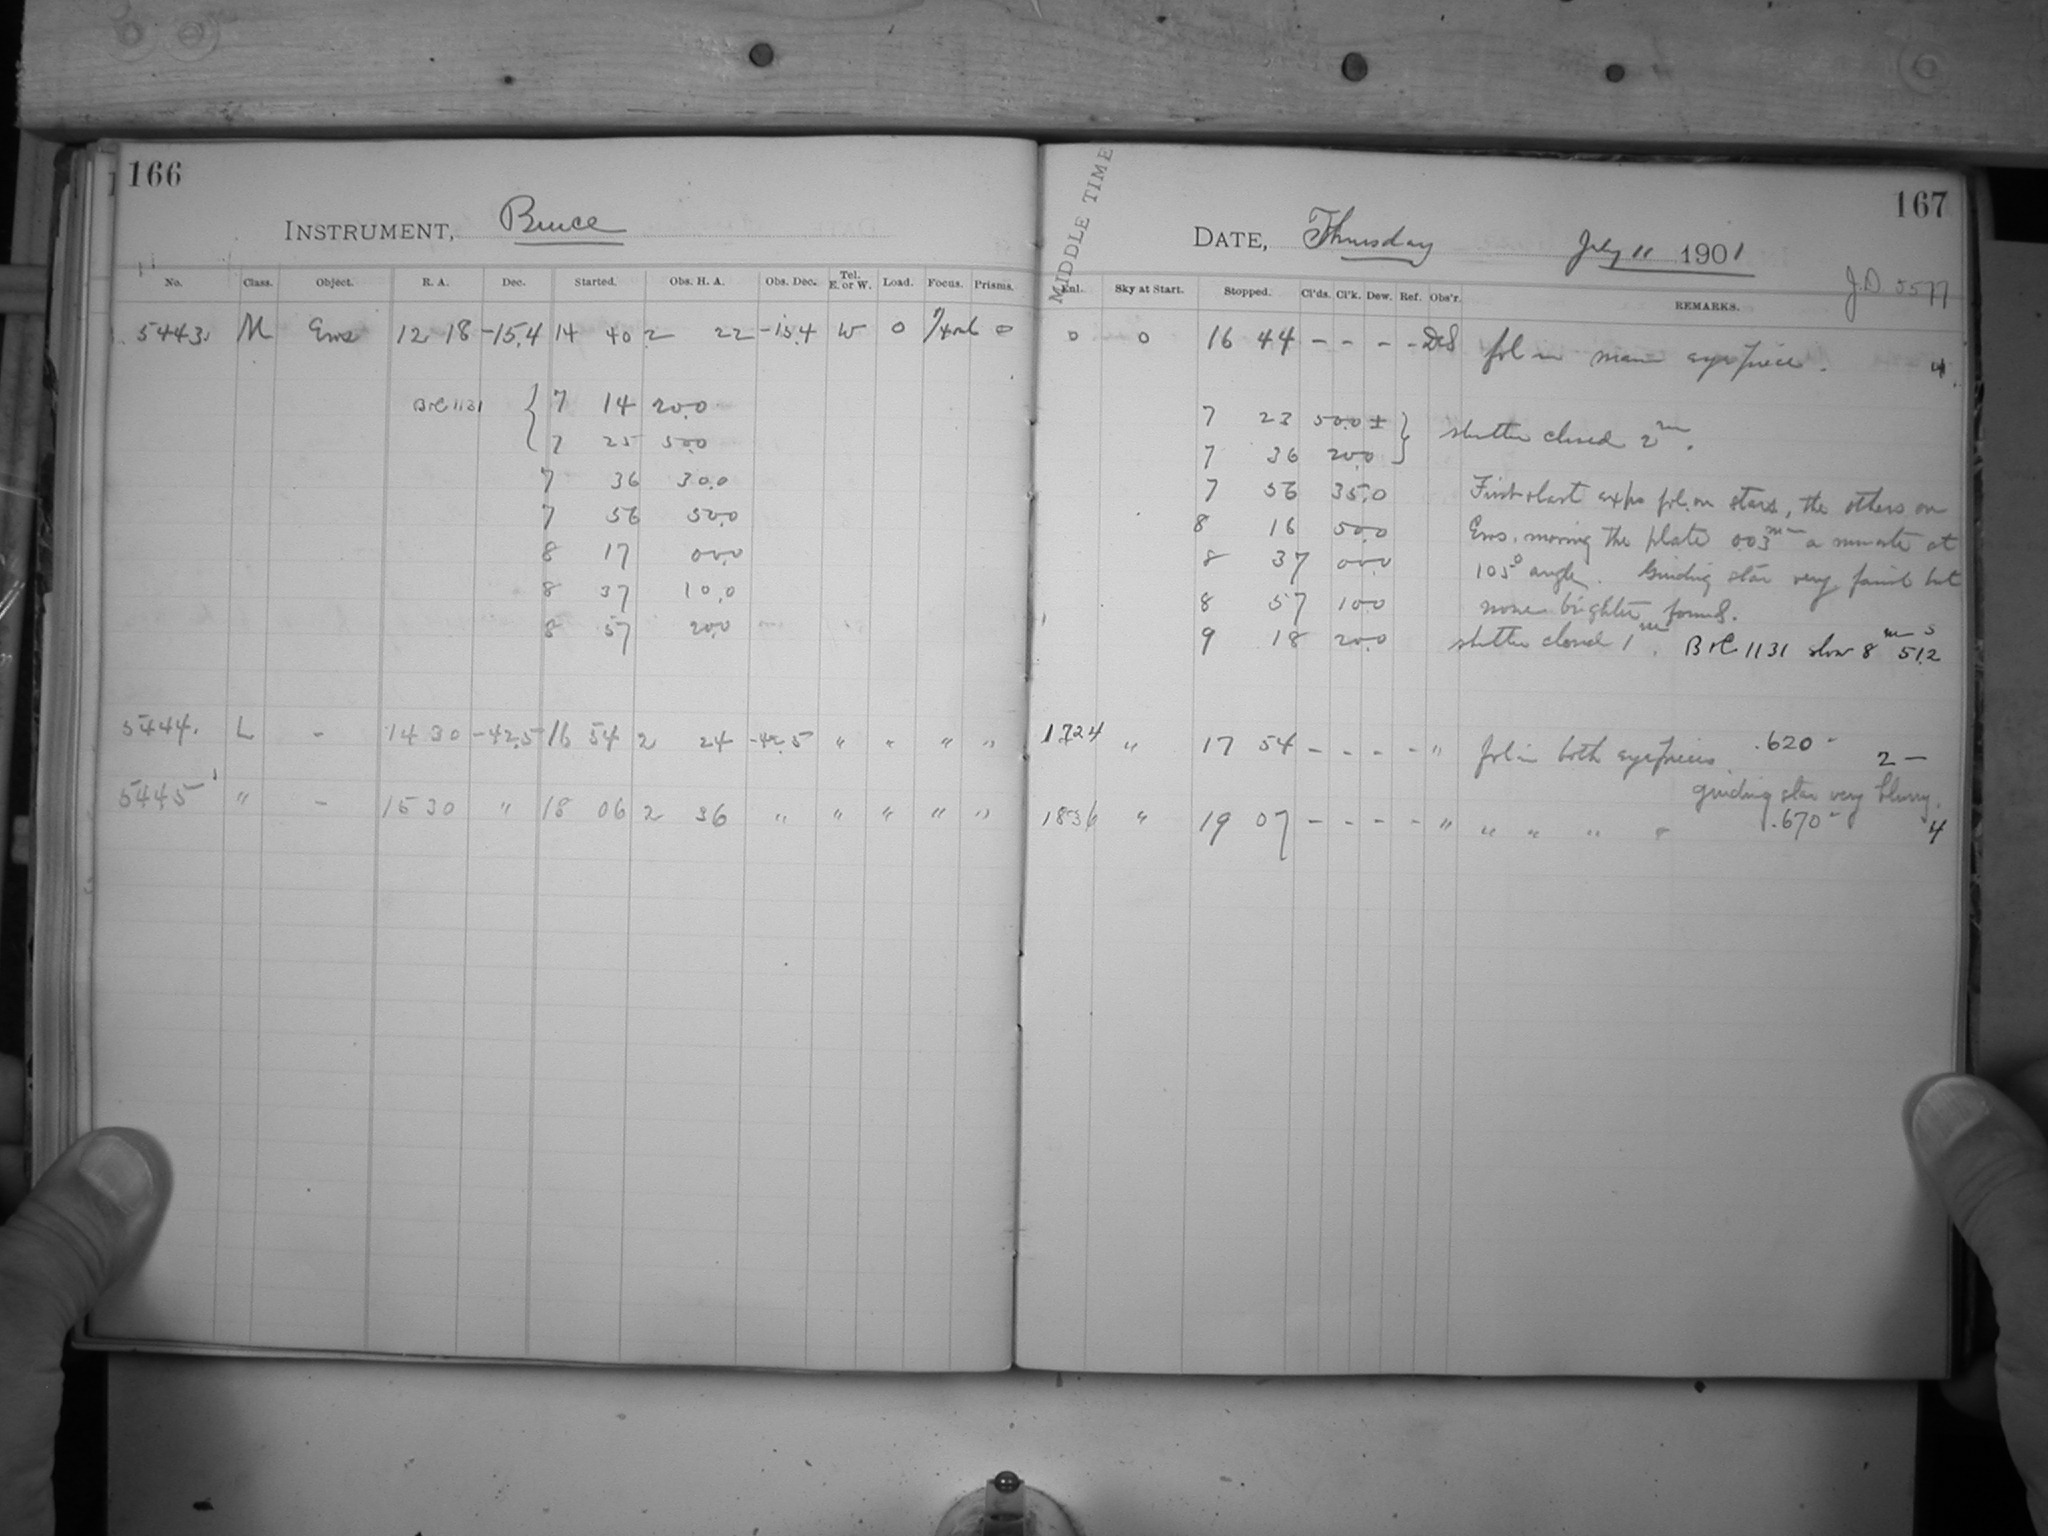 166
INSTRUMENT, Bruce
No. Class. Object. R. A. Dec. Started. Obs. H. A. Obs. Dec. Tel. E. or W. Load. Focus. Prisms.
5443. M Eros 12 18 -15.4 14 40 2 22 -15.4 W 0 0
B+C 1131 { 7 14 20.0
7 25 50.0
7 36 30.0
7 56 50.0
8 17 00.0
8 37 10.0
8 57 20.0
5444. L - 14 30 -42.5 16 54 2 24 -42.5 " " " "
5445 " - 15 30 " 18 06 2 36 " " " " "
MIDDLE TIME
167
DATE, Thursday July 11 1901
J.D. 5577
Enl. Sky at Start. Stopped. Cl'ds. Cl'k. Dew. Ref. Obs'r. REMARKS.
0 0 16 44 - - - - DeS fol in main eyepiece. 4
7 23 50.0 ± } shutter closed 2m.
7 36 20.0
7 56 35.0 First + last exps fol. on stars, the others on
8 16 50.0 Eros, moving the plate 0.03mm a minute at
8 37 00.0 105° angle. Guiding star very faint but
8 57 10.0 none brighter found.
9 18 20.0 shutter closed 1m. B+C 1131 slow 8m 51.2s
1724 " 17 54 - - - - " fol in both eyepieces .620 - 2 -
guiding star very blurry.
1836 " 19 07 - - - - " " " " " .670 - 4